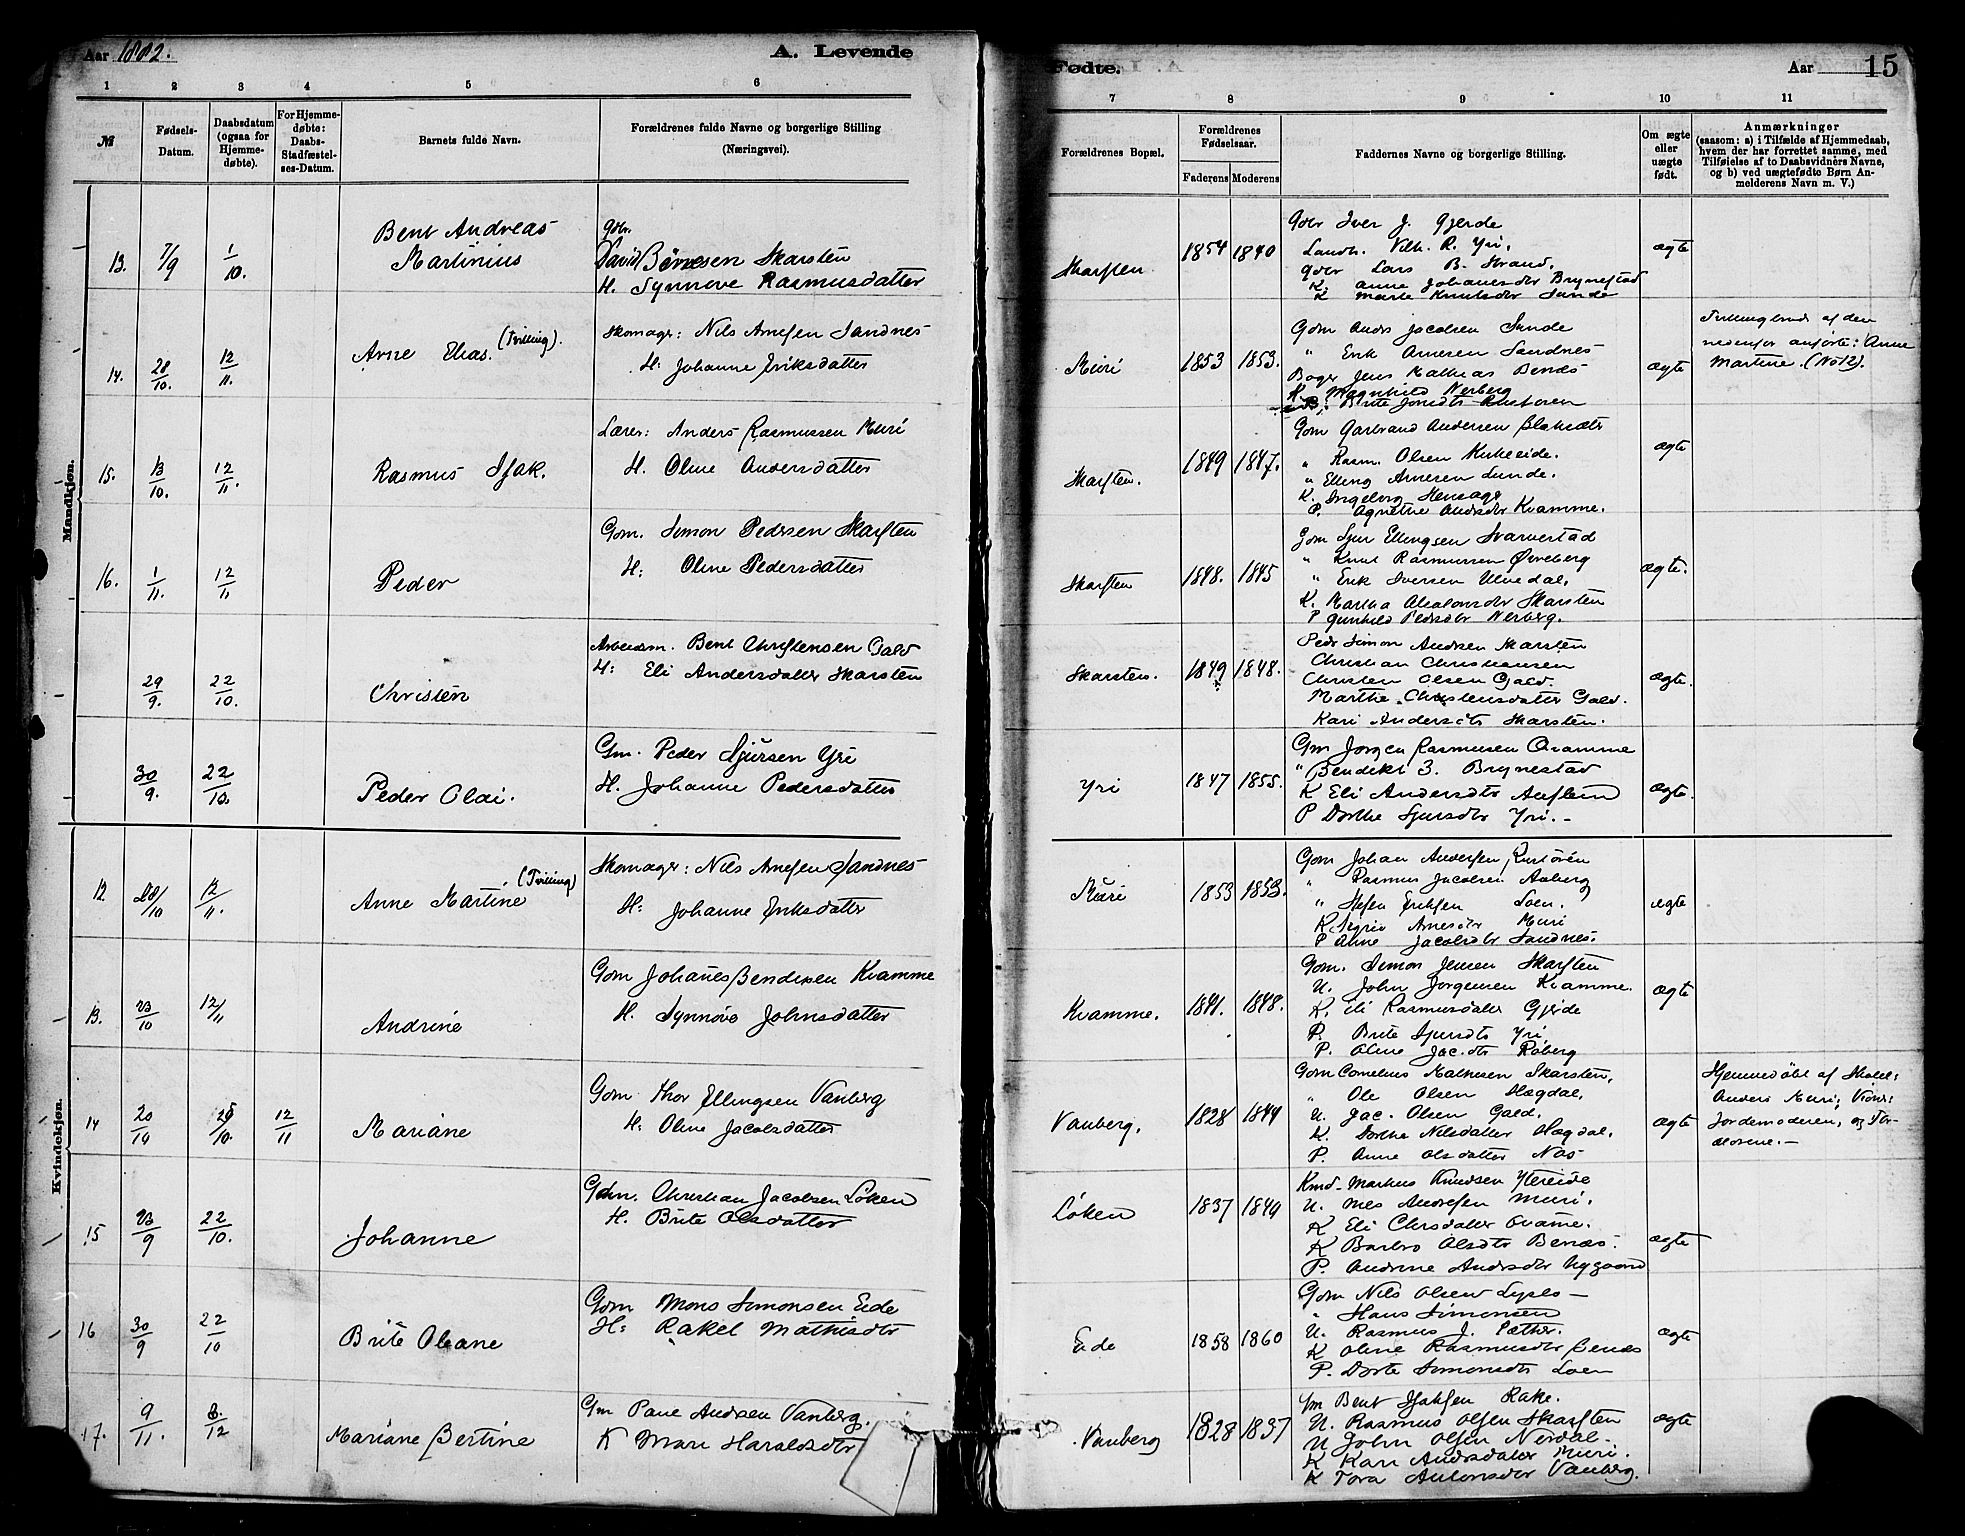 Aar 1882.
A. Levende
Fødte.
Aar 15
1 2 3 4 5 6 7 8 9 10 11
№
Fødsels-
Datum.
Daabsdatum
(ogsaa for
Hjemme-
døbte).
For Hjemme-
døbte:
Daabs-
Stadfæstel-
ses-Datum.
Barnets fulde Navn.
Forældrenes fulde Navne og borgerlige Stilling
(Næringsvei).
Forældrenes Bopæl.
Forældrenes
Fødselsaar.
Faderens Moderens
Faddernes Navne og borgerlige Stilling.
Om ægte
eller
uægte
født.
Anmærkninger
(saasom: a) i Tilfælde af Hjemmedaab,
hvem der har forrettet samme, med
Tilføielse af to Daabsvidners Navne,
og b) ved uægtefødte Børn An-
melderens Navn m. V.)
Mandkjøn.
13. 7/9 1/10.
Bent Andreas
Martinius
Gbr.
David Skarsten
H. Synnøve Rasmusdatter
Skarsten
1854 1840
Gbr Iver J. Gjerde
Landh. Vilh. R. Yri.
Gbr Lars B. Strand.
K. Anne Johannesdtr Brynestad
K Marte Knutsdtr Sunde
ægte
14. 28/10. 12/11.
Arne Elias. (Tvilling).
Skomager: Nils Arnesen Sandnes
H: Johanne Eriksdatter
Muri
1853 1853.
Gdm Anders Jacobsen Sunde
" Erik Arnesen Sandnes
Bager Jens Mathias Benæs
K. Magnhild Nerberg
P. Brite Jonsdtr
ægte
Tvillingbrud af den
nedenfor anførte: Anne
Martine. (No 12).
15. 13/10. 12/11.
Rasmus Isak.
Lærer: Anders Rasmussen Muri
H. Oline Andersdatter
Skarsten.
1849 1847.
Gdm Garbrand Andersen
" Rasm. Olsen Kirkeeide.
" Elling Arnesen Sunde.
K. Ingeborg
P. Agnethe Andsdtr Kvamme.
ægte
16. 1/11. 12/11
Peder
Gdm. Simon Pedersen Skarsten
H: Oline Pedersdatter
Skarsten
1848. 1845
Gdm Sjur Ellingsen Svarvestad
" Knut Rasmussen Øvreberg
" Erik Iversen Ulvedal.
K. Martha Absalonsdtr Skarsten
P Gunhild Pedersdtr Nerberg.
ægte.
29/9. 22/10.
Christen
Arbeidsm. Bent Christensen Gald
H: Eli Andersdatter Skarsten
Skarsten.
1849 1848.
Pedr Simon Andsen Skarsten
Christian Christiansen
Christen Olsen Gald.
Marthe Christensdatter Gald.
Kari Andersdtr Skarsten.
ægte.
30/9. 22/10.
Peder Olai.
Gm. Peder Sjursen Yri
H. Johanne Pedersdatter
Yri
1847 1855.
Gm Jørgen Rasmusen Qvamme
" Bendikt 3. Brynestad
K Eli Andersdtr Auflem
P Dorthe Sjursdtr Yri.-
ægte.
Kvindekjøn.
12 28/10 12/11.
Anne Martine (Tvilling)
Skomager: Nils Arnesen Sandnes
H: Johanne Eriksdatter
Muri
1853 1853.
Gdm Johan Andersen
" Rasmus Jacobsen Aaberg
" Stefen Eriksen Loen.
K. Sigrid Arnesdtr Muri
P Oline Jacobsdtr Sandnes.
ægte
13. 23/10 12/11
Andrine
Gdm Johanes Bendiksen Kvamme
H. Synnøve Johnsdatter
Kvamme.
1841. 1848.
Gdm. Simon Jensen Skarsten
U. John Jørgensen Kvamme.
K. Eli Rasmusdatter Gjerde
P. Brite Sjursdtr Yri
P. Oline Jac.dtr Roberg
ægte
14 20/10 25/10. 12/11
Mariane
Gdm Thor Ellingsen Vanberg
H: Oline Jacobsdatter
Vanberg.
1828 1849
Gdm Cornelius Mathisen Skarsten,
" Ole Olsen Hægdal,
U. Jac. Olsen Gald.
K. Dorthe Nilsdatter Hægdal.
P. Anne Olsdatter Nos
ægte
Hjemmedøbt af Skoleł:
Anders Muri; Vidner:
Jordemoderen, og For-
ældrene.-
15 23/9 22/10.
Johanne
Gdm. Christian Jacobsen Løken
H. Brite Olsdatter
Løken
1837 1849
Kmd. Markus Knudsen Ytreeide
U. Nils Andresen Muri.
K Eli Chrsdatter Qvame.
K Barbro Olsdtr Benæs.
P. Andrine Andrsdtr Nygaard
ægte
16 30/9 22/10
Brite Oleane
Gdm Mons Simonsen Eide
H: Rakel Mathisdtr
Eide
1858 1860
Gdm Nils Olsen
" Hans Simonsen
U. Rasmus J. Sæther.
K Oline Rasmusdtr Benæs
P. Dorte Simonsdtr Loen
ægte
17. 9/11. 3./12
Mariane Bertine
Gm Paul Andsen Vanberg.
K Mari Haraldsdtr
Vanberg
1828 1837
Gm Bent Isaksen Rake.
U. Rasmus Olsen Skarsten
U John Olsen Nerdal
K Kari Andrsdatter Muri.
K Tora Antonsdtr Vanberg.
ægte